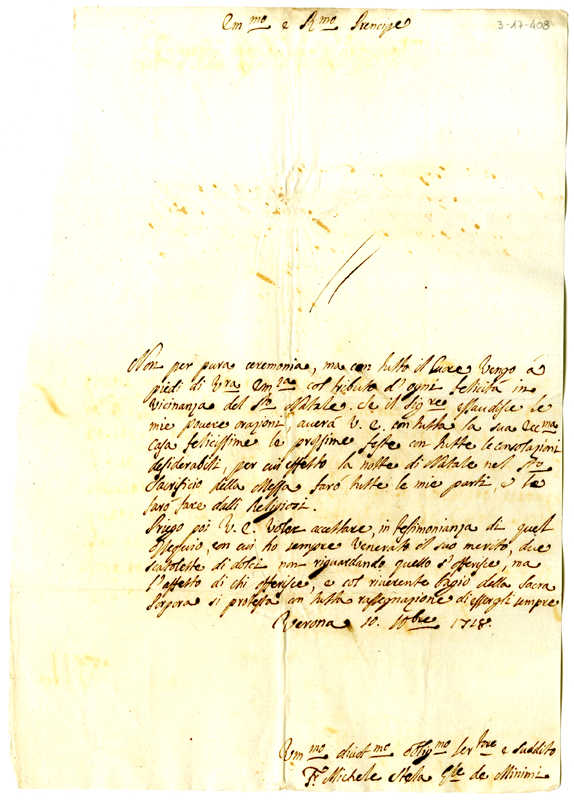 Em.mo e R.mo Prencipe
3-17-408
Non per pura ceremonia, ma con tutto il Cuore Vengo á
piedi di V.ra Em.za col tributo d'ogni felicità in
vicinanza del S.to Natale. Se il Sig.re essaudisce le
mie povere orazioni, averà V. E. con tutta la sua Ecc.ma
Casa felicissime le prossime feste con tutte le consolazioni
desiderabili, per cui effetto la notte di Natale nel S.to
Sacrificio della Messa farò tutte le mie parti, e le
farò fare dalli Religiosi.
Prego poi V. E. voler accettare, in testimonianza di quest
ossequio, con cui ho sempre Venerato il suo merito, due
scatolette di dolci non riguardando quello s'offerisce, ma
l'affetto di chi offerisce, e col riverente bagio della Sacra
Porpora si protesta con tutta rassegnazione di essergli sempre
Verona 10. Xbre 1718.
Um.mo divot.mo oblig.mo ser.tore e suddito
Fr. Michele Stela G.le de Minimi